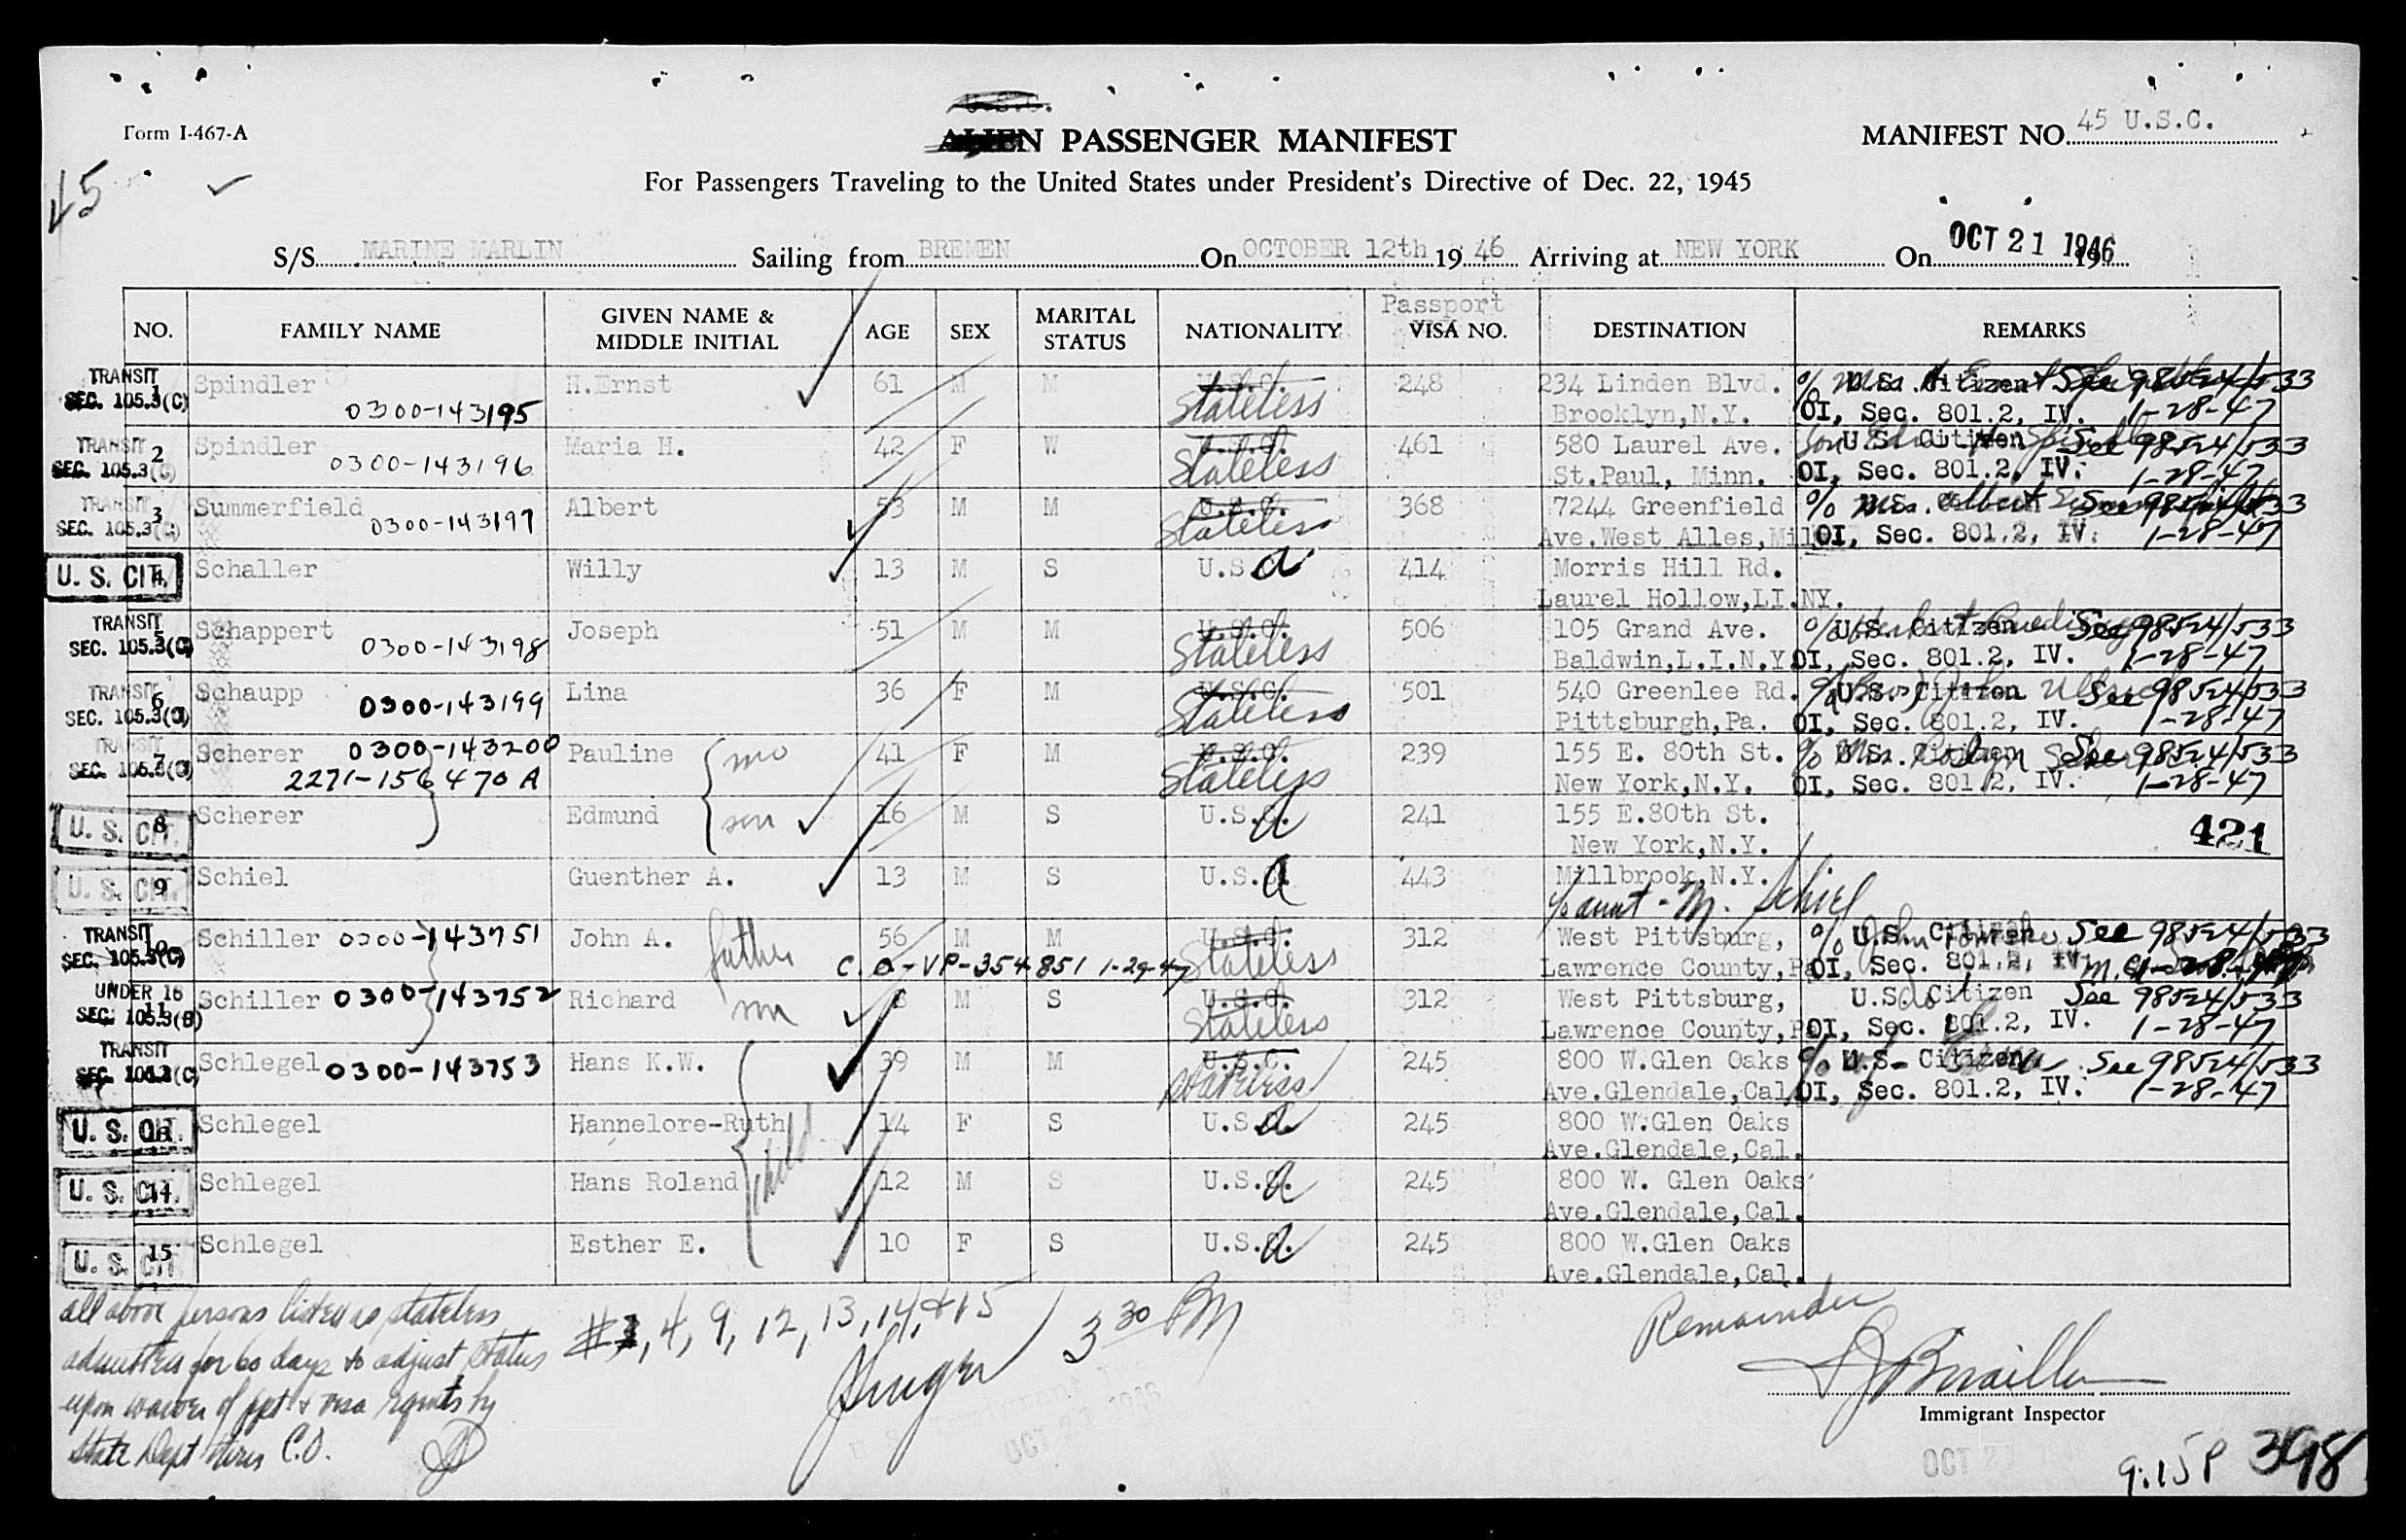 Form I-467-A
U.S.C.
ALIEN PASSENGER MANIFEST
MANIFEST NO. 45 U.S.C.
45
For Passengers Traveling to the United States under President's Directive of Dec. 22, 1945
S/S MARINE MARLIN Sailing from BREMEN On OCTOBER 12th 19 46 Arriving at NEW YORK On OCT 21 1946 19
NO. FAMILY NAME GIVEN NAME & MIDDLE INITIAL AGE SEX MARITAL STATUS NATIONALITY Passport VISA NO. DESTINATION REMARKS
TRANSIT 1 Spindler H.Ernst 61 M M U.S.C. 248 234 Linden Blvd. U.S. Citizen See 98524/533
SEC. 105.3(C) 0300-143195 Stateless Brooklyn,N.Y. OI, Sec. 801.2, IV. 1-28-47
TRANSIT 2 Spindler Maria H. 42 F W U.S.C. 461 580 Laurel Ave. U.S. Citizen See 98524/533
SEC. 105.3(C) 0300-143196 Stateless St.Paul, Minn. OI, Sec. 801.2, IV. 1-28-47
TRANSIT 3 Summerfield Albert 53 M M U.S.C. 368 7244 Greenfield U.S. See 98524/533
SEC. 105.3(C) 0300-143197 Stateless Ave.West Alles,Mil OI, Sec. 801.2, IV. 1-28-47
U. S. CIT. 4 Schaller Willy 13 M S U.S.a 414 Morris Hill Rd.
Laurel Hollow,LI.NY.
TRANSIT 5 Schappert Joseph 51 M M U.S.C. 506 105 Grand Ave. U.S. Citizen See 98524/533
SEC. 105.3(C) 0300-143198 Stateless Baldwin,L.I.N.Y. OI, Sec. 801.2, IV. 1-28-47
TRANSIT 6 Schaupp Lina 36 F M U.S.C. 501 540 Greenlee Rd. U.S. Citizen See 98524/533
SEC. 105.3(C) 0300-143199 Stateless Pittsburgh,Pa. OI, Sec. 801.2, IV. 1-28-47
TRANSIT 7 Scherer 0300-143200 Pauline mo 41 F M U.S.C. 239 155 E. 80th St. U.S. Citizen See 98524/533
SEC. 105.3(C) 2271-156470A Stateless New York,N.Y. OI, Sec. 801.2, IV. 1-28-47
U. S. CIT. 8 Scherer Edmund son 16 M S U.S.a 241 155 E.80th St.
New York,N.Y. 421
U. S. CIT. 9 Schiel Guenther A. 13 M S U.S.a 443 Millbrook,N.Y.
c/o aunt - M. Schiel
TRANSIT 10 Schiller 0300-143751 John A. father 56 M M U.S.C. 312 West Pittsburg, U.S. Citizen See 98524/533
SEC. 105.3(C) C.O-VP-354851 1-29-47 Stateless Lawrence County,Pa OI, Sec. 801.2, IV.
UNDER 16 11 Schiller 0300-143752 Richard son 8 M S U.S.C. 312 West Pittsburg, U.S. Citizen See 98524/533
SEC. 105.3(B) Stateless Lawrence County,Pa OI, Sec. 801.2, IV. 1-28-47
TRANSIT Schlegel 0300-143753 Hans K.W. 39 M M U.S.C. 245 800 W.Glen Oaks U.S. Citizen See 98524/533
SEC. 105.3(C) Stateless Ave.Glendale,Cal. OI, Sec. 801.2, IV. 1-28-47
U. S. CIT. 13 Schlegel Hannelore-Ruth 14 F S U.S.a 245 800 W.Glen Oaks
child Ave.Glendale,Cal.
U. S. CIT. 14 Schlegel Hans Roland 12 M S U.S.a 245 800 W. Glen Oaks
Ave.Glendale,Cal.
U. S. CIT. 15 Schlegel Esther E. 10 F S U.S.a 245 800 W.Glen Oaks
Ave.Glendale,Cal.
all above persons listed as stateless
admitted for 60 days to adjust status
upon waiver of ppt & visa rqmts by
State Dept thru C.O.
#1, 4, 9, 12, 13, 14, & 15 3 30 PM
Remainder
Immigrant Inspector
OCT 21 1946
OCT 21
9:15P 398